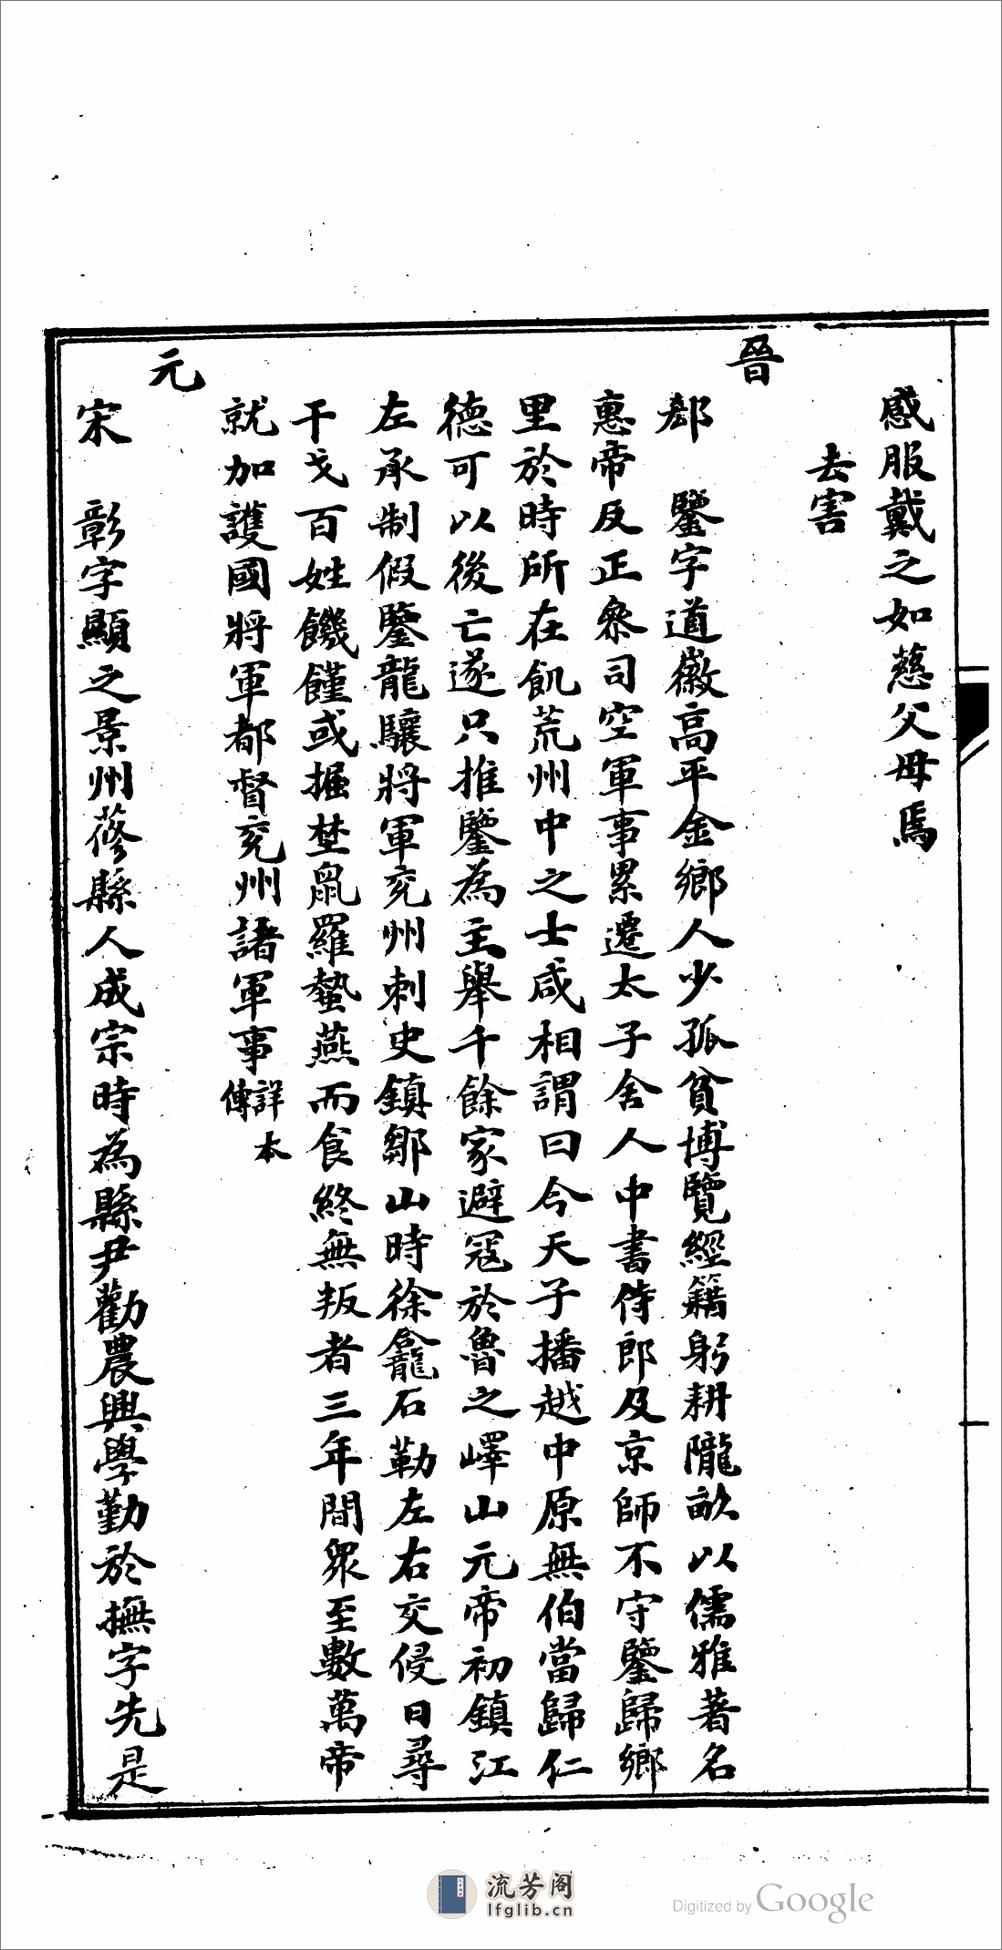 感服戴之如慈父母焉
去害
晉
郄　鑒字道徽高平金鄉人少孤貧博覽經籍躬耕隴畝以儒雅著名
惠帝反正叅司空軍事累遷太子舍人中書侍郎及京師不守鑒歸鄉
里於時所在飢荒州中之士咸相謂曰今天子播越中原無伯當歸仁
德可以後亡遂只推鑒為主舉千餘家避寇於魯之嶧山元帝初鎮江
左承制假鑒龍驤將軍兖州刺史鎮鄒山時徐龕石勒左右交侵日尋
干戈百姓饑饉或掘埜鼠羅蟄燕而食終無叛者三年間衆至數萬帝
就加護國將軍都督兖州諸軍事詳本傳
元
宋　彰字顯之景州蓚縣人成宗時為縣尹勸農興學勤於撫字先是
流芳阁
lfglib.cn
Digitized by Google